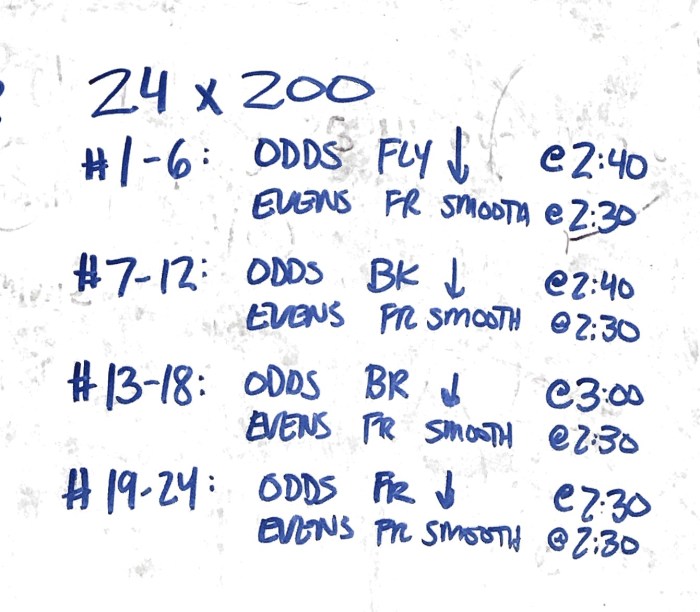 24 x 200
#1-6: ODDS FLY ↓ @2:40
EVENS FR SMOOTH @2:30
#7-12: ODDS BK ↓ @2:40
EVENS FR SMOOTH @2:30
#13-18: ODDS BR ↓ @3:00
EVENS FR SMOOTH @2:30
#19-24: ODDS FR ↓ @2:30
EVENS FR SMOOTH @2:30